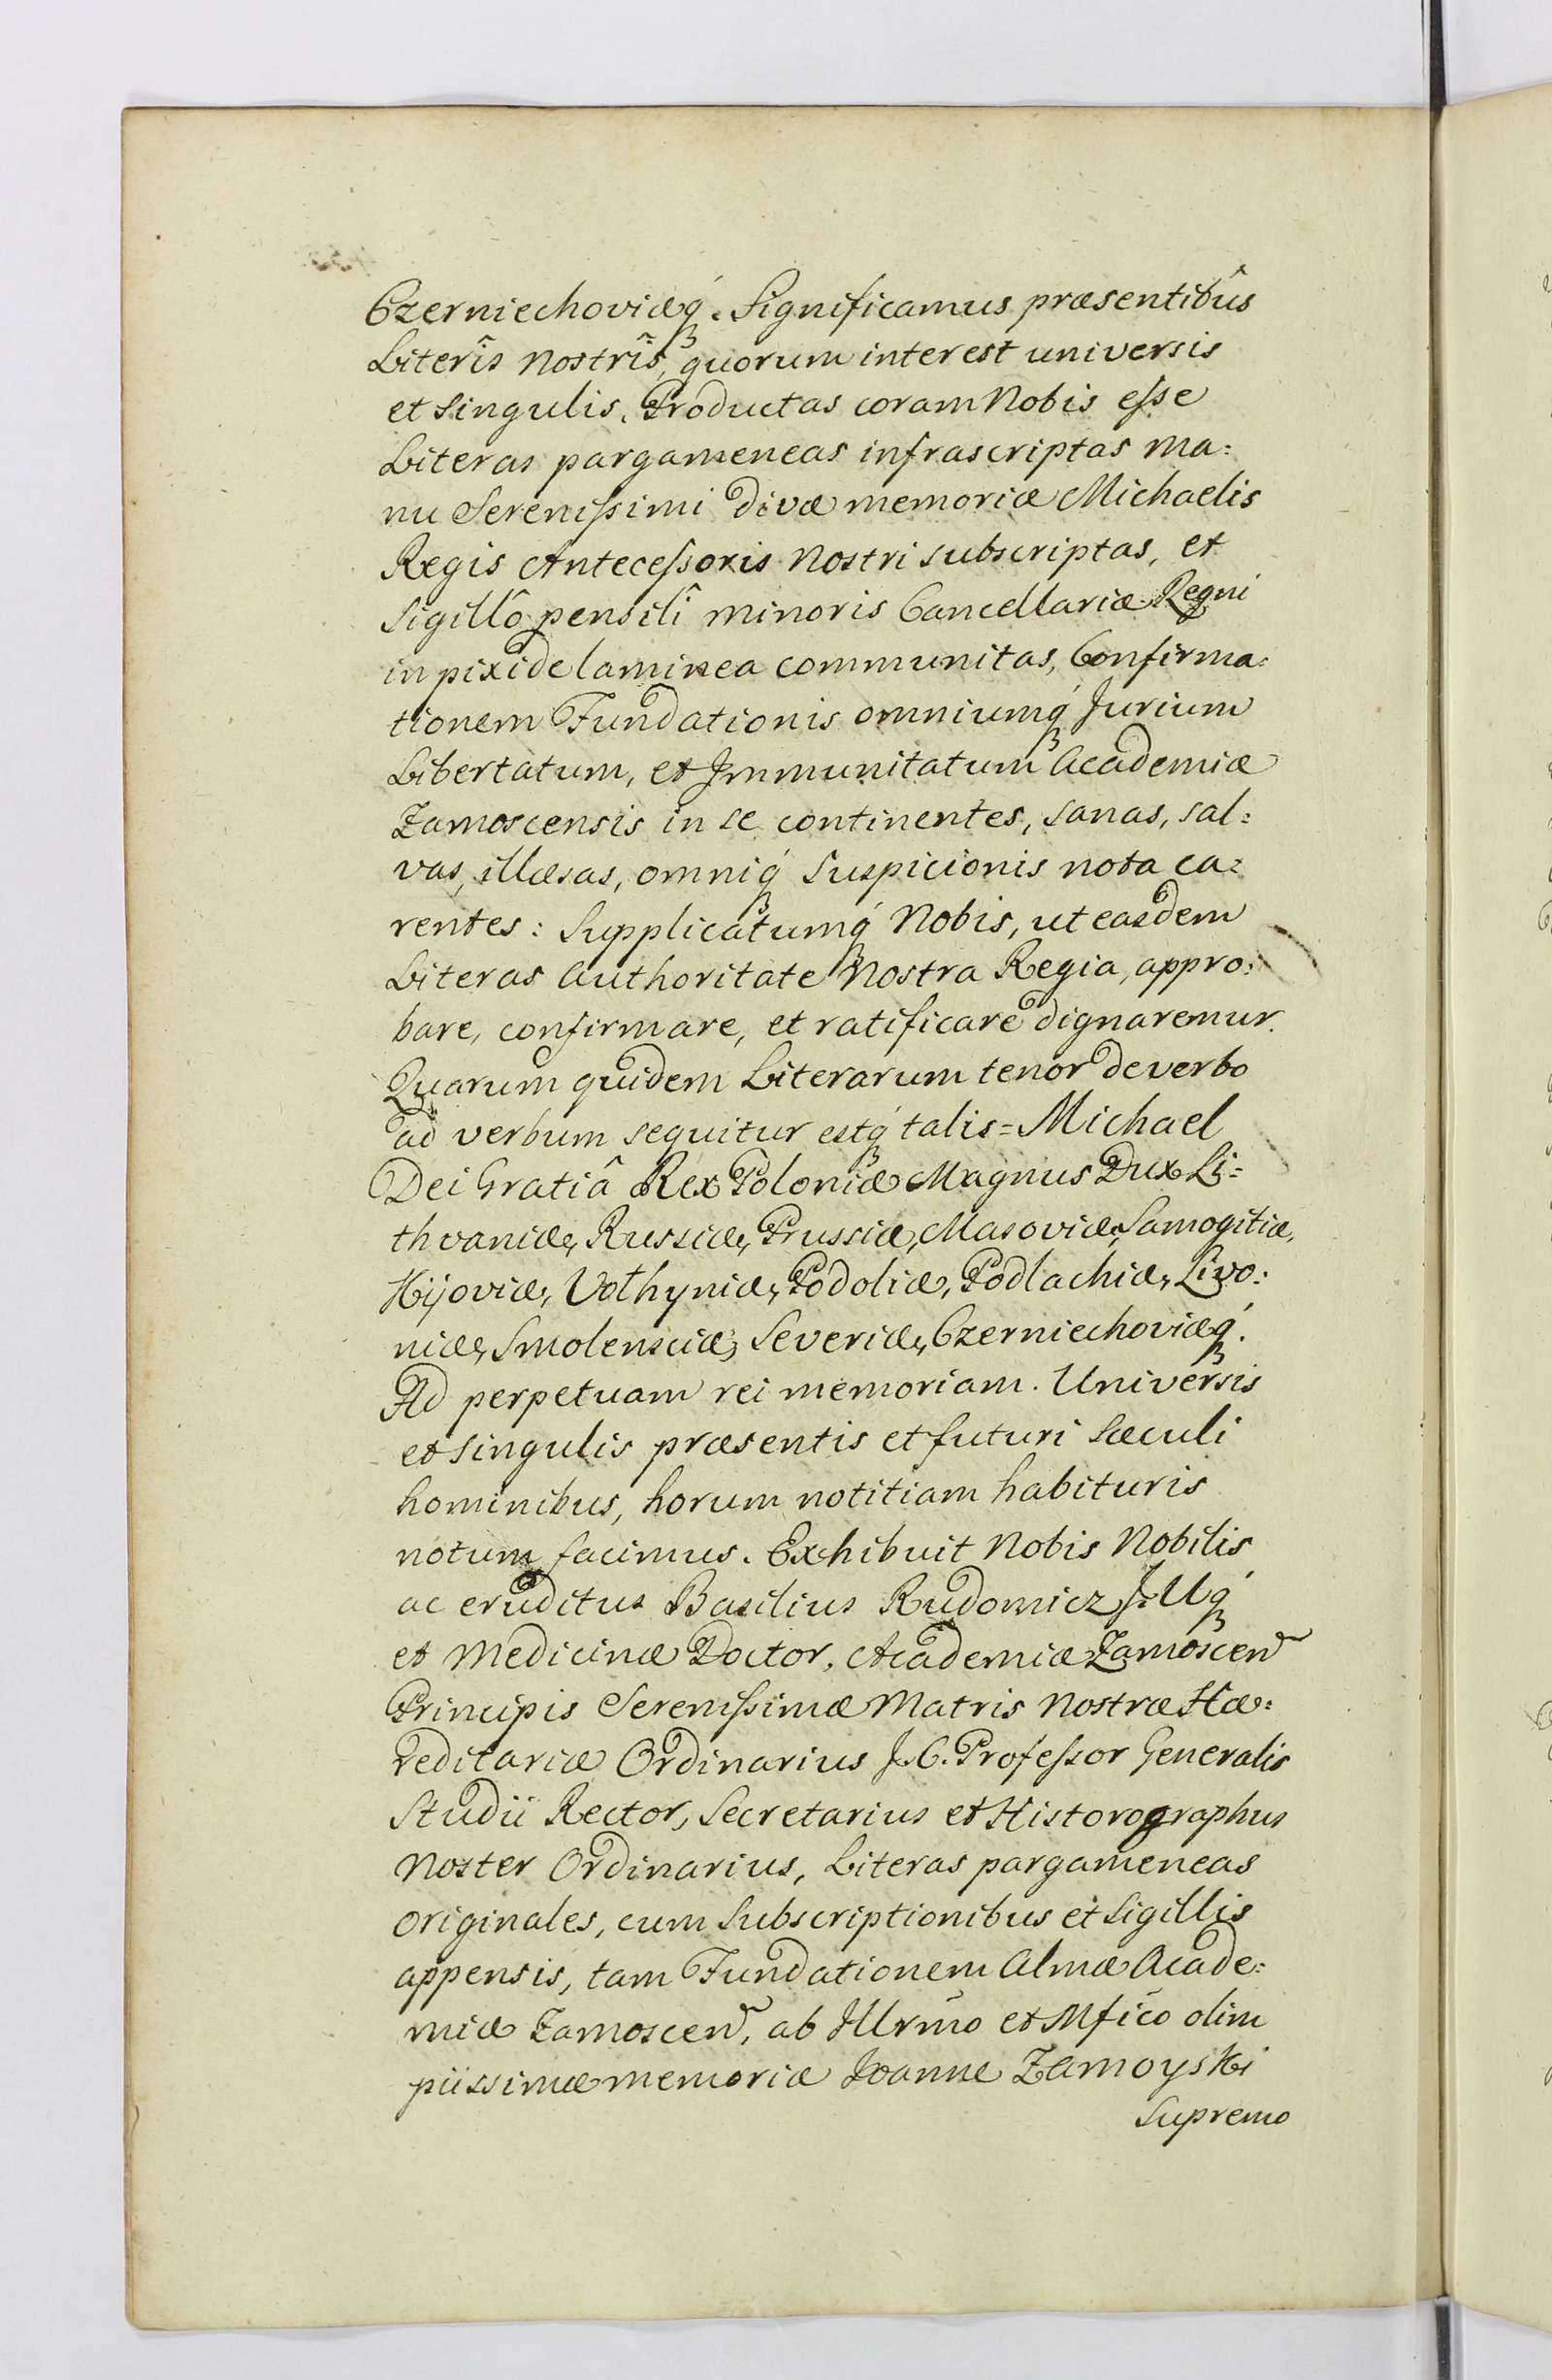 Czerniechoviæq́ꝫ. Significamus præsentibûs
Literîs Nostrîs, quorum interest universis
et singulis, Productas coram Nobis eſse
Literas pargameneas infrascriptas ma=
nu Sereniſsimi Divæ memoriæ Michaelis
Regis Anteceſsoris Nostri subscriptas, et
Sigillô pensilî minoris Cancellariæ Regni
in pixide laminea communitas, Confirma=
tionem Fundationis omniumq́ꝫ Jurium
Libertatum, et Immunitatum Academiæ
Zamoscensis in se continentes, sanas, sal=
vas, illæsas, omniq́ꝫ Suspicionis nota ca=
rentes: Supplicatumq́ꝫ Nobis, ut easdem
Literas Authoritate Nostra Regia, appro=
bare, confirmare, et ratificare dignaremur.
Quarum quidem Literarum tenor de verbo
ad verbum sequitur estq́ꝫ talis = Michael
Dei Gratiâ Rex Poloniæ Magnus Dux Li=
thvaniæ, Russiæ, Prussiæ, Masoviæ, Samogitiæ,
Kijoviæ, Volhyniæ, Podoliæ, Podlachiæ, Livo=
niæ, Smolensciæ, Severiæ, Czerniechoviæq́ꝫ.
Ad perpetuam rei memoriam. Universis
et singulis præsentis et futuri Sæculi
hominibus, horum notitiam habituris
notum facimus. Exhibuit Nobis Nobilis
ac eruditus Basilius Rudomicz J. Uq́ꝫ
et Medicinæ Doctor, Academiæ Zamoscen̄
Principis Sereniſsimæ Matris Nostræ Hæ=
reditariæ Ordinarius J. C. Profeſsor Generalis
Studii Rector, Secretarius et Historographus
Noster Ordinarius, Literas pargameneas
originales, cum Subscriptionibus et Sigillis
appensis, tam Fundationem Almæ Acade=
miæ Zamoscen̄, ab Illrm̄o et Mfic̄o olim
piissimæ memoriæ Joanne Zamoyski
Supremo